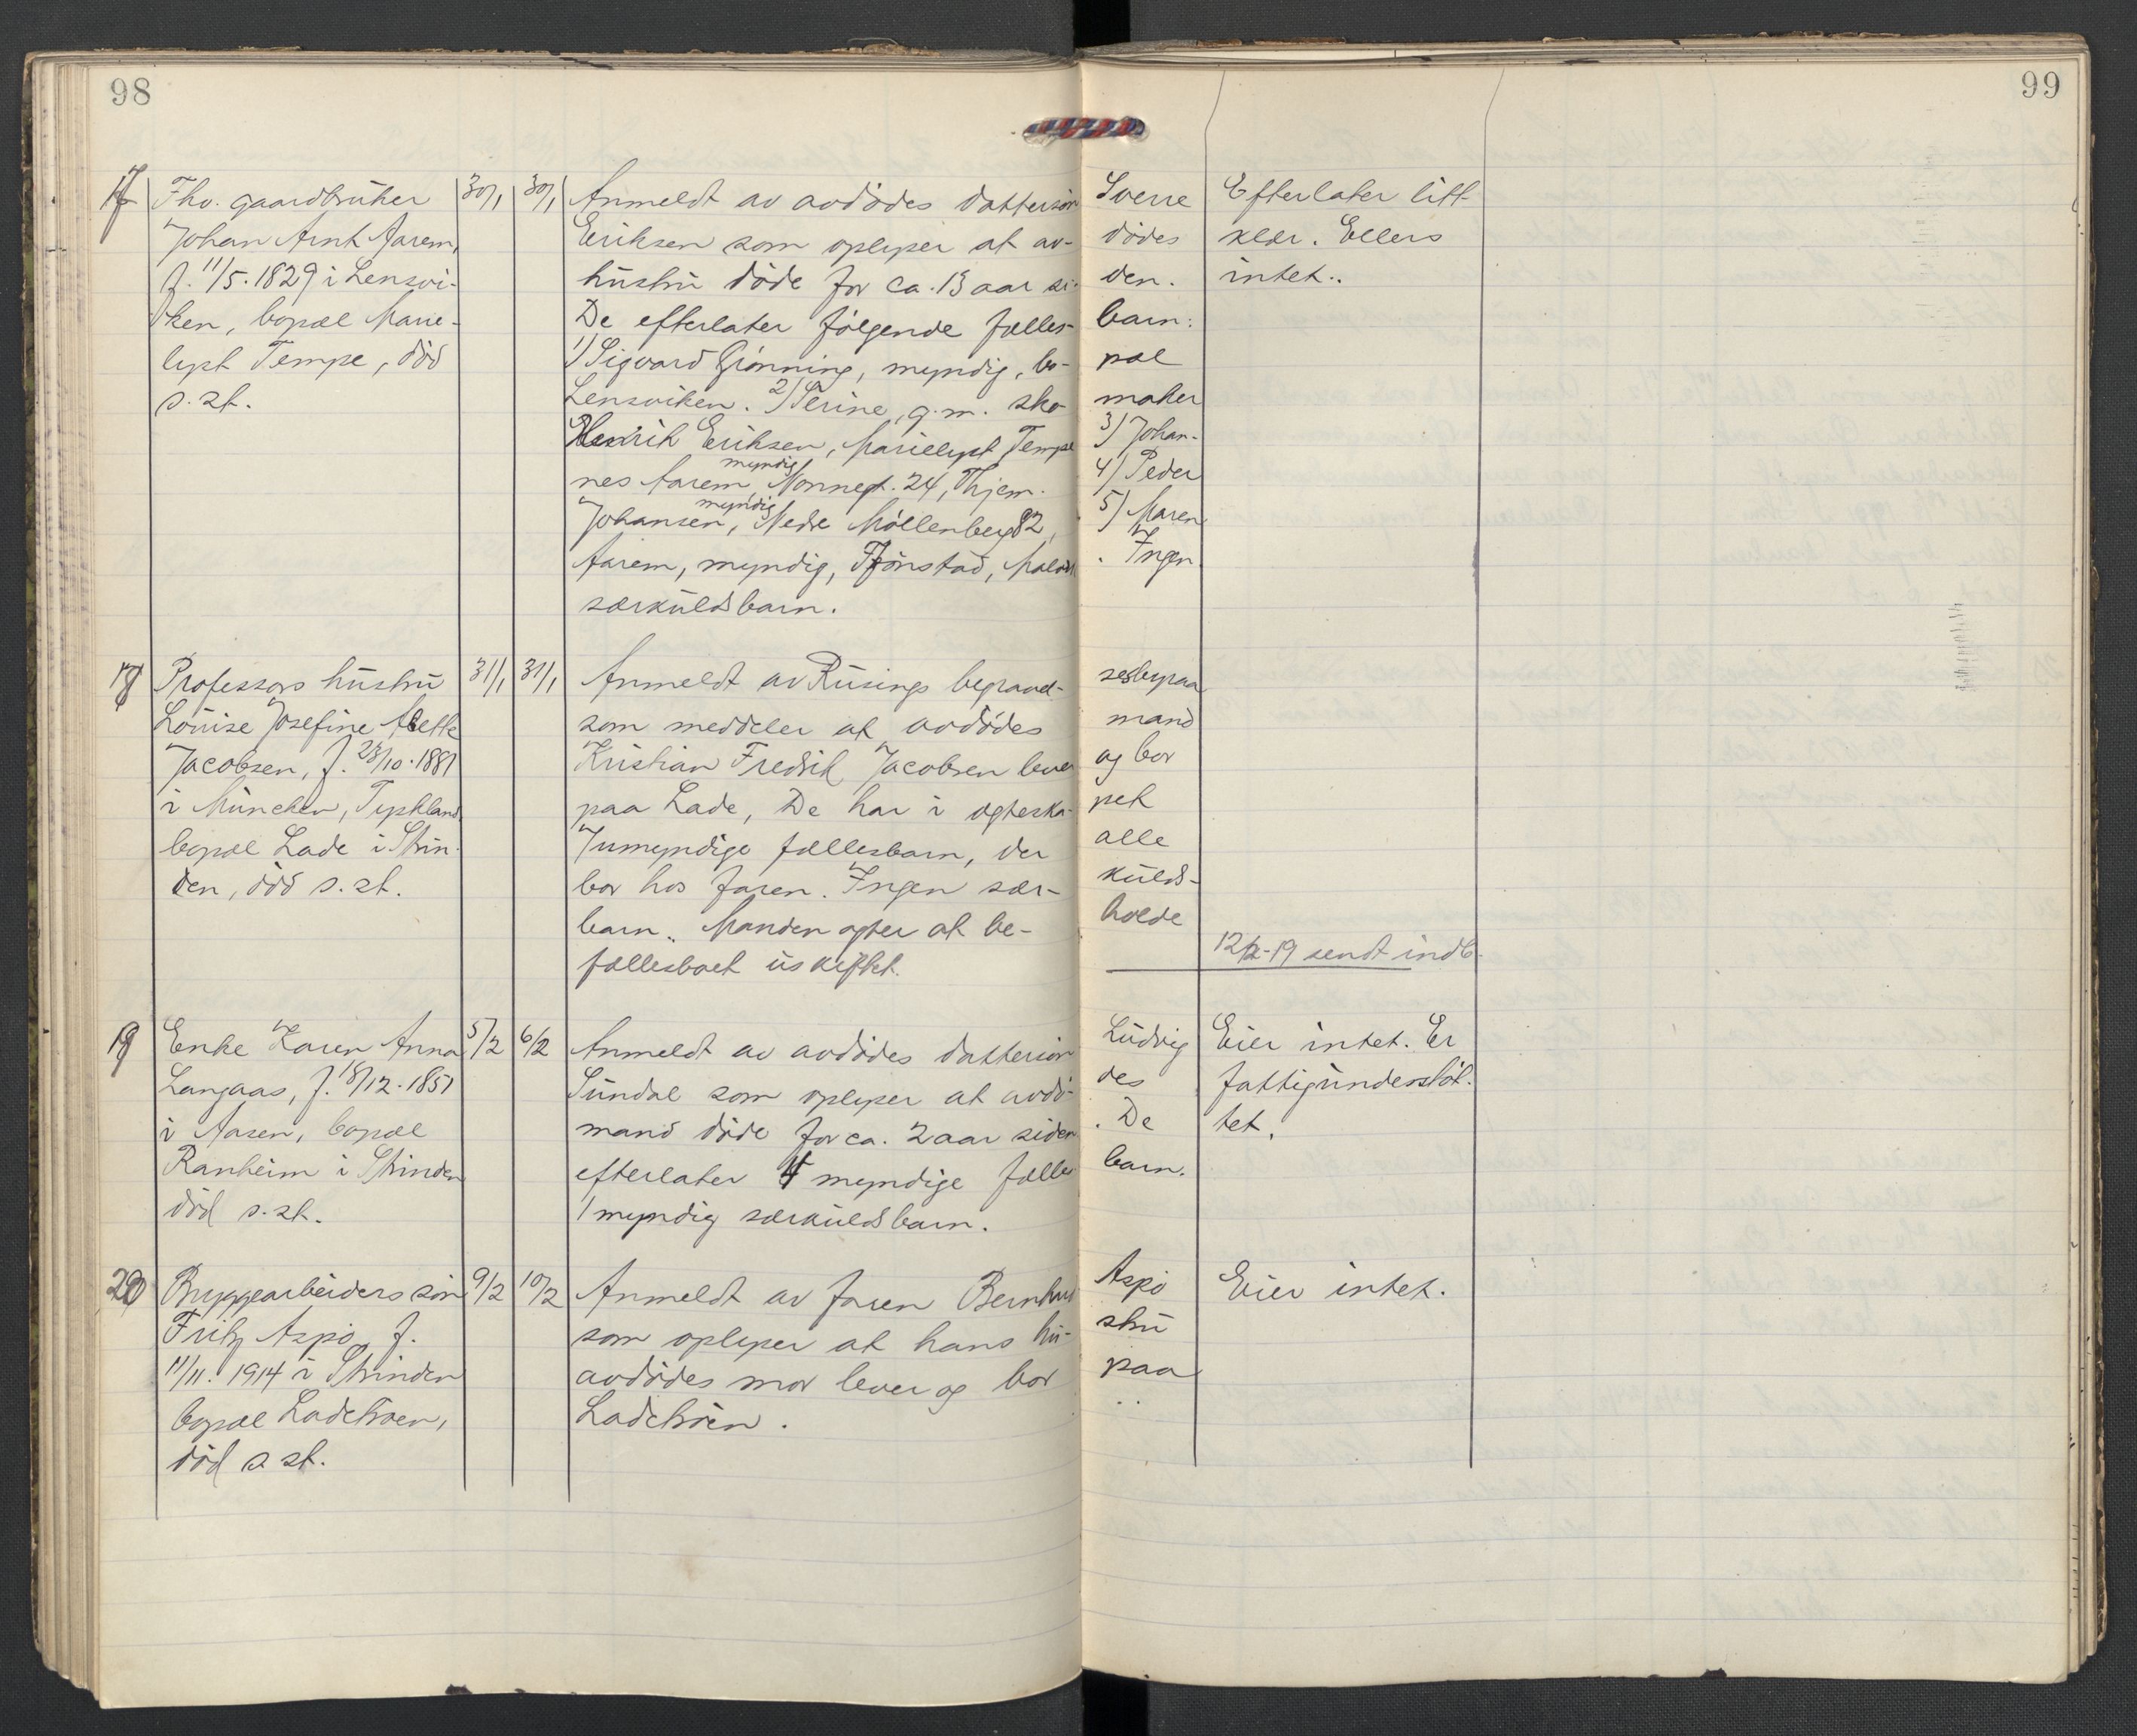 98
99
17 Fhv. gaardbruker 30/1 30/1 Anmeldt av avdødes dattersøn Sverre Efterlater litt
Johan Arnt Aarem, Eriksen som oplyser at av- dødes klær. Ellers
f. 11/5. 1829 i Lensvi- hustru døde for ca. 13 aar si- den. intet.
ken, bopæl Marie- De efterlater følgende fælles- barn:
lyst Tempe, død 1) Sigvard Grønning, myndig, bo- pæl
s. st. Lensviken. 2) Serine, g.m. sko- maker
Henrik Eriksen, Marielyst Tempe 3) Johan-
nes Aarem, myndig Nonnegt. 24, Thjem. 4) Peder
Johansen, myndig, Nedre Møllenberg 82, 5) Maren
Aarem, myndig, Fjønstad, Malvik. Ingen
særkuldsbarn.
18 Professors hustru 31/1 31/1 Anmeldt av Rusings begravel- sesbyraa
Louise Josefine Mette som meddeler at avdødes mand
Jacobsen, f. 28/10. 1881 Kristian Fredrik Jacobsen lever og bor
i München, Tyskland, paa Lade, De har i egteska- pet
bopæl Lade i Strin- 7 umyndige fællesbarn, der alle
den, død s. st. bor hos faren. Ingen sær- kulds-
barn. Manden agter at be- holde
fællesboet uskiftet. 12/2-19 sendt indb.
19 Enke Karen Anna 5/2 6/2 Anmeldt av avdødes dattersøn Ludvig Eier intet. Er
Langaas, f. 18/12. 1851 Sundal som oplyser at avdø- des fattigunderstøt-
i Aasen, bopæl mand døde for ca. 2 aar siden. De tet.
Ranheim i Strinden efterlater 4 myndige fælles barn.
død s. st. 1 myndig særkuldsbarn.
20 Bryggearbeiders søn 9/2 10/2 Anmeldt av faren Bernhard Aspø Eier intet.
Fritz Aspø, f. som oplyser at hans hu- stru
11/11. 1914 i Strinden avdødes mor lever og bor paa
bopæl Ladehoen, Ladehoen.
død s st.